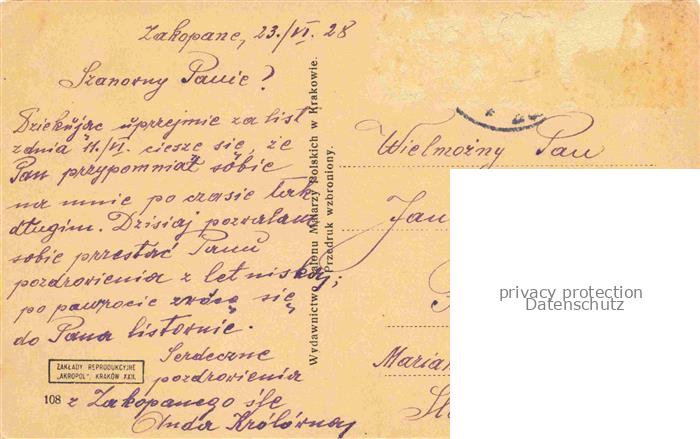 Zakopane, 23./VI. 28
Szanowny Panie!
Dziękując uprzejmie za list
z dnia 11./VI. cieszę się, że
Pan przypomniał sobie
na mnie po czasie tak
długim. Dzisiaj pozwalam
sobie przesłać Panu
pozdrowienia z letniska;
po powrocie zwócę się
do Pana listownie.
Serdeczne
pozdrowienia
z Zakopanego śle
Anda Królówna
ZAKŁADY REPRODUKCYJNE
„AKROPOL”, KRAKÓW XXII.
108
Wydawnictwo Salonu Malarzy Polskich w Krakowie.
Przedruk wzbroniony.
Wielmożny Pan
Jan
Marian
privacy protection
Datenschutz